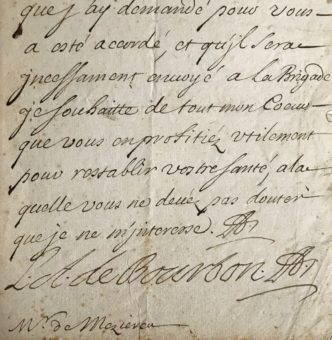 que j'ay demandé pour vous
a esté accordé, et qu'il sera
incessament envoyé a La Brigade
je souhaitte de tout mon Coeur
que vous en profitiez utilement
pour restablir vostre santé, a la
quelle vous ne deuéz pas douter
que je ne m'interesse.
L. A. de Bourbon.
Mr. de Mezieres